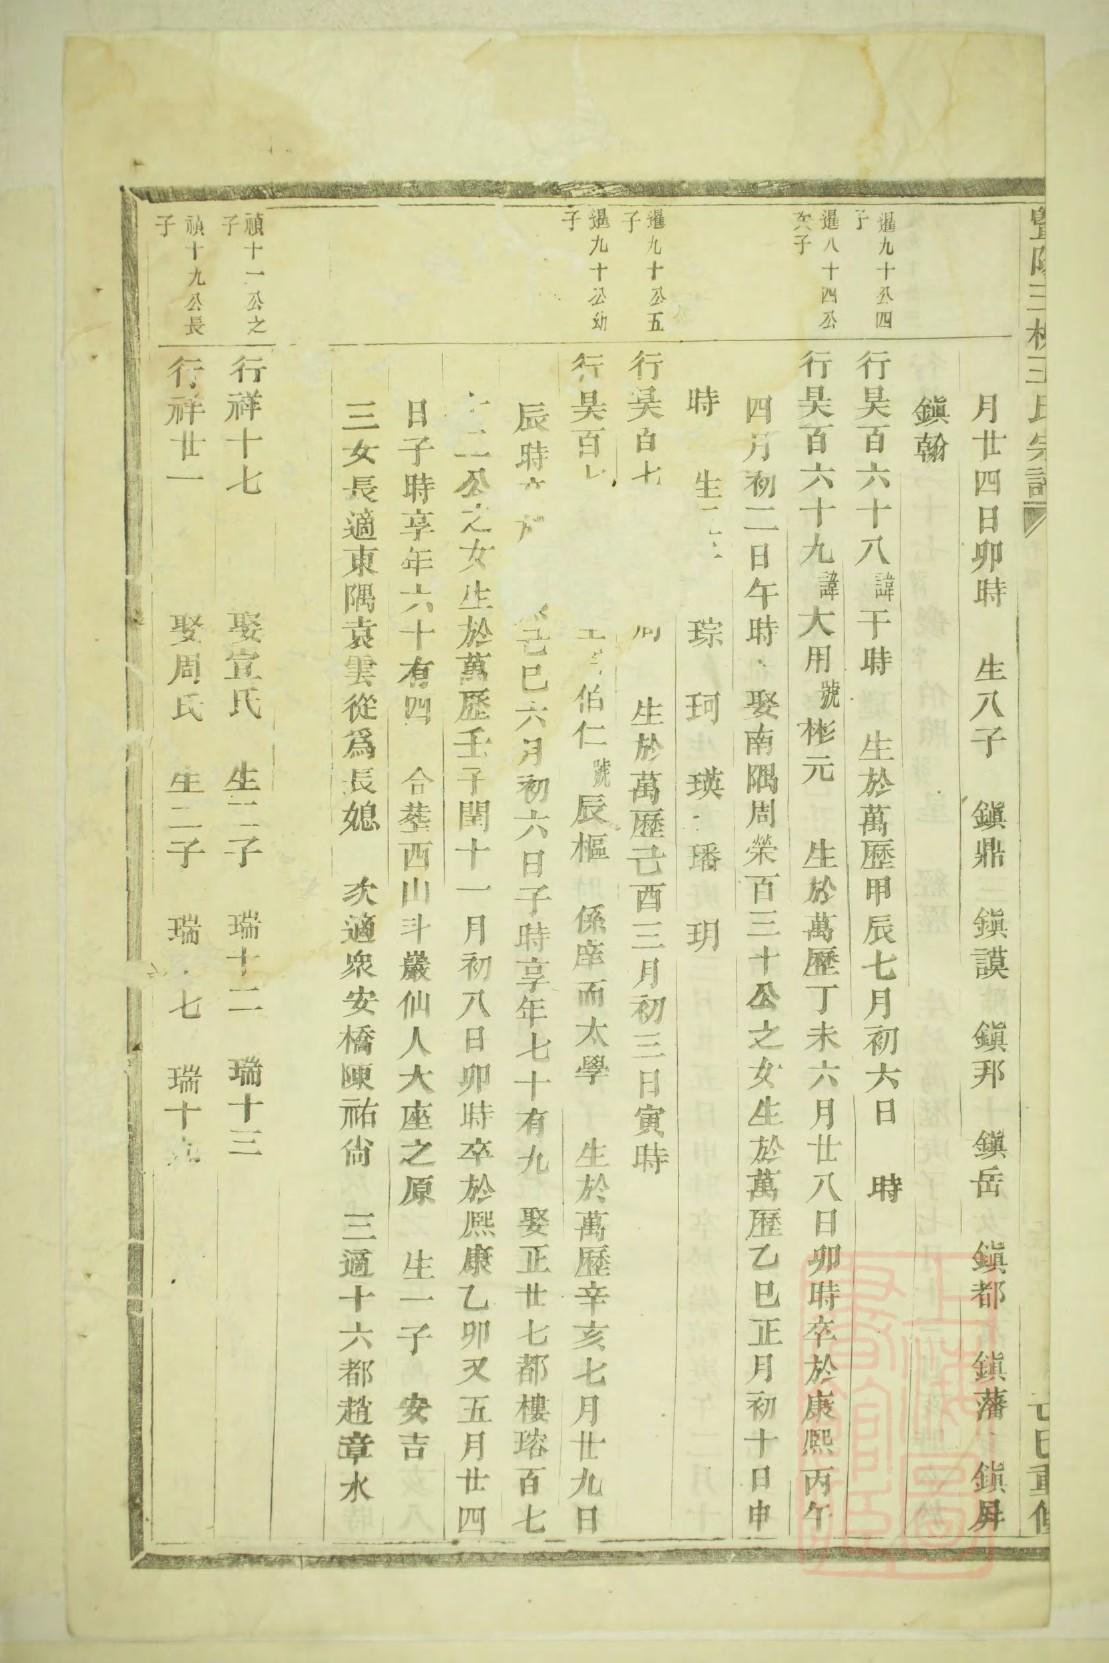 月廿四日卯時　生八子　鎮鼎　鎮謨　鎮邦　鎮岳　鎮都　鎮藩　鎮昇
鎮翰
暹九十公四子
行昊百六十八諱于時　生於萬歷甲辰七月初六日　時
暹八十四公次子
行昊百六十九諱大用號彬元　生於萬歷丁未六月廿八日卯時卒於康熙丙午
四月初二日午時　娶南隅周榮百三十公之女生於萬歷乙巳正月初十日申
時　生　琮　珂　瑛　璠　玥
暹九十公五子
行昊百七　生於萬歷己酉三月初三日寅時
暹九十公幼子
行昊百　伯仁號辰樞　係庠而太學　生於萬歷辛亥七月廿九日
辰時　己巳六月初六日子時享年七十有九　娶正廿七都樓瑢百七
十二公之女生於萬歷壬子閏十一月初八日卯時卒於熙康乙卯又五月廿四
日子時享年六十有四　合塟西山斗巖仙人大座之原　生一子　安吉
三女長適東隅袁雲從爲長媳　次適衆安橋陳祐尙　三適十六都趙章水
禎十一公之子
行祥十七　娶宣氏　生二子　瑞十二　瑞十三
禎十九公長子
行祥廿一　娶周氏　生二子　瑞　七　瑞十九